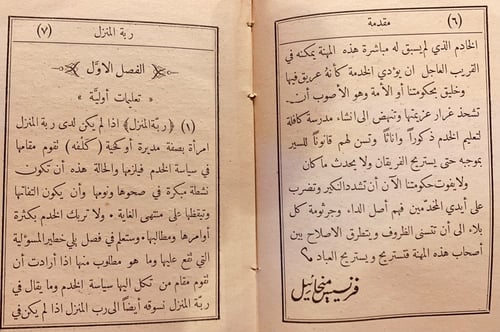 (٦) مقدمة
الخادم الذي لم يسبق له مباشرة هذه المهنة يمكنه في
القريب العاجل ان يؤدي الخدمة كأنهُ عريق فيها
وخليق بحكومتنا أو الأمة وهو الأصوب أن
تشحذ غرار عزيمتها وتنهض الى انشاء مدرسة كافلة
لتعليم الخدم ذكوراً واناثاً وتسن لهم قانوناً للسير
بموجبه حتى يستريح الفريقان ولا يحدث ما كان
ولا يفوت حكومتنا الآن أن تشدد النكير وتضرب
على أيدي المخدّمين فهم أصل الداء وجرثومة كل
بلاء الى أن تتسنى الظروف ويتطرق الاصلاح بين
أصحاب هذه المهنة فتستريح ويستريح العباد
فرنسيس ميخائيل
ربة المنزل (٧)
الفصل الاوّل
« تعليمات أوليّة »
(١) ﴿ربّة المنزل﴾ اذا لم يكن لدى ربة المنزل
امرأة بصفة مديرة أو كخية (كلفه) تقوم مقامها
في سياسة الخدم فيلزمها والحالة هذه أن تكون
نشطة مبكرة في صحوها ونومها وأن يكون التفاتها
وتيقظها على منتهى الغاية . ولا تربك الخدم بكثرة
أوامرها ومطالبها. وستعلم في فصل يلي خطير المسؤلية
التي تقع عليها وما هو مطلوب منها اذا أرادت أن
تقوم مقام من تكل اليها سياسة الخدم وما يقال في
ربّة المنزل نسوقه أيضاً الى رب المنزل اذا لم يكن في